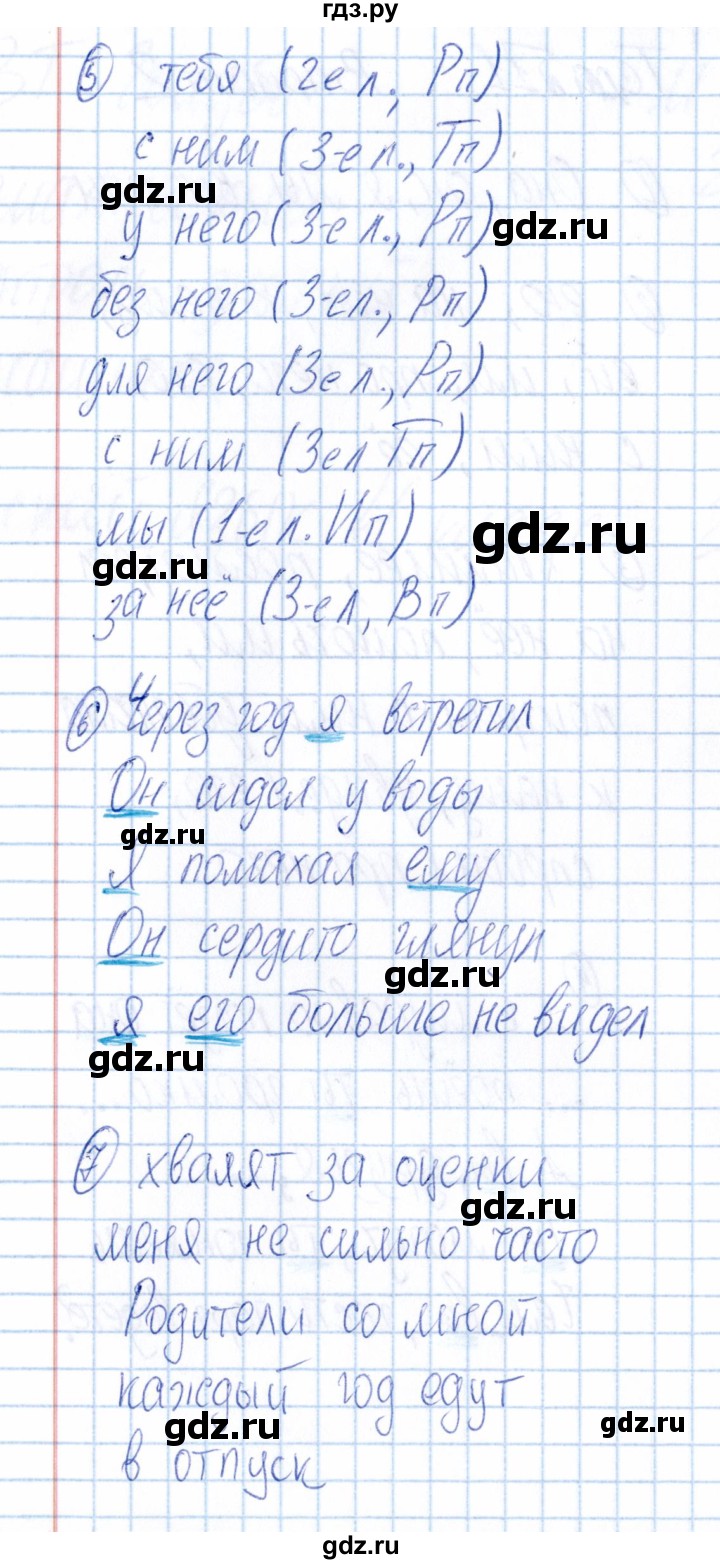 гдз.ру
5 тебя (2 е л., Рп)
с ним (3-е л., Тп).
gdz.ru
у него (3-е л., Рп)
gdz.ru
без него (3-ел., Рп)
для него (3е л., Рп)
с ним (3ел Тп)
мы (1-е л. Ип)
gdz.ru
gdz.ru
за неё (3-ел, Вп)
6 Через год я встретил
Он сидел у воды
gdz.ru
Я помахал ему
Он сердито глянул
gdz.ru
я его больше не видел
gdz.ru
7 хвалят за оценки
gdz.ru
меня не сильно часто
Родители со мной
каждый год едут
gdz.ru
gdz.ru
в отпуск
gdz.ru